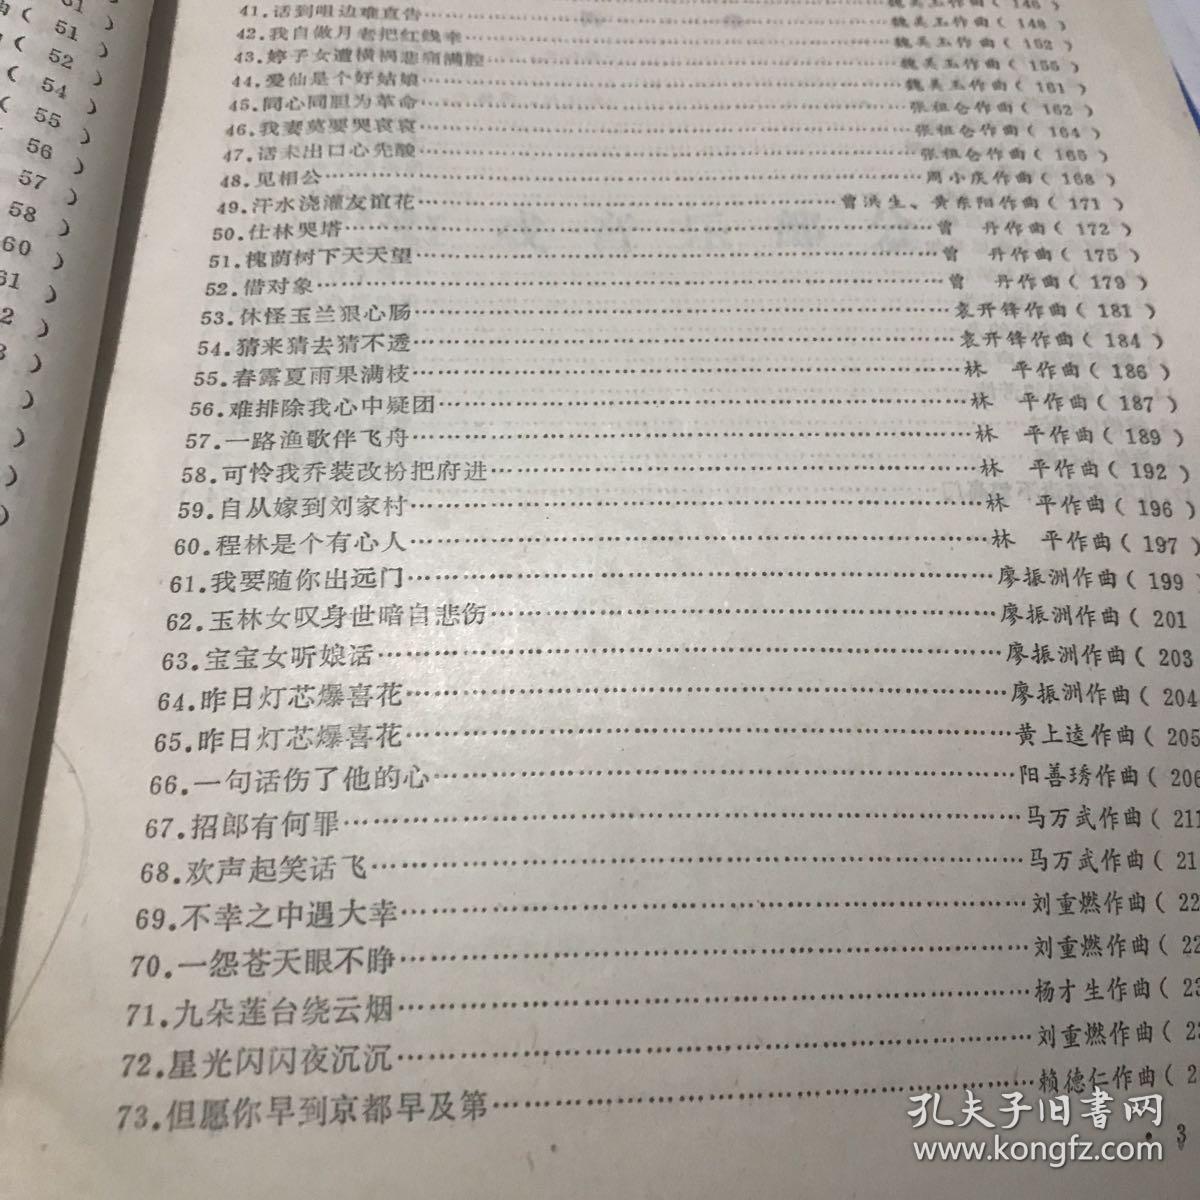 41.话到咀边难直告……魏美玉作曲( 148 )
42.我自做月老把红线牵……魏美玉作曲( 152 )
43.婷子女遭横祸悲痛满腔……魏美玉作曲( 155 )
44.爱仙是个好姑娘……魏美玉作曲( 161 )
45.同心同胆为革命……张祖仑作曲( 162 )
46.我妻莫要哭哀哀……张祖仑作曲( 164 )
47.话未出口心先酸……张祖仑作曲( 165 )
48.见相公……周小庆作曲( 168 )
49.汗水浇灌友谊花……曾洪生、黄东阳作曲( 171 )
50.仕林哭塔……曾 丹作曲( 172 )
51.槐荫树下天天望……曾 丹作曲( 175 )
52.借对象……曾 丹作曲( 179 )
53.休怪玉兰狠心肠……袁开锋作曲( 181 )
54.猜来猜去猜不透……袁开锋作曲( 184 )
55.春露夏雨果满枝……林 平作曲( 186 )
56.难排除我心中疑团……林 平作曲( 187 )
57.一路渔歌伴飞舟……林 平作曲( 189 )
58.可怜我乔装改扮把府进……林 平作曲( 192 )
59.自从嫁到刘家村……林 平作曲( 196 )
60.程林是个有心人……林 平作曲( 197 )
61.我要随你出远门……廖振洲作曲( 199 )
62.玉林女叹身世暗自悲伤……廖振洲作曲( 201
63.宝宝女听娘话……廖振洲作曲( 203
64.昨日灯芯爆喜花……廖振洲作曲( 204
65.昨日灯芯爆喜花……黄上逵作曲( 205
66.一句话伤了他的心……阳善琇作曲( 206
67.招郎有何罪……马万武作曲( 211
68.欢声起笑话飞……马万武作曲( 21
69.不幸之中遇大幸……刘重燃作曲( 22
70.一怨苍天眼不睁……刘重燃作曲( 22
71.九朵莲台绕云烟……杨才生作曲( 23
72.星光闪闪夜沉沉……刘重燃作曲( 23
73.但愿你早到京都早及第……赖德仁作曲( 2
· 3
51 )
52 )
54 )
55 )
56 )
57 )
58 )
60 )
61 )
孔夫子旧书网
www.kongfz.com